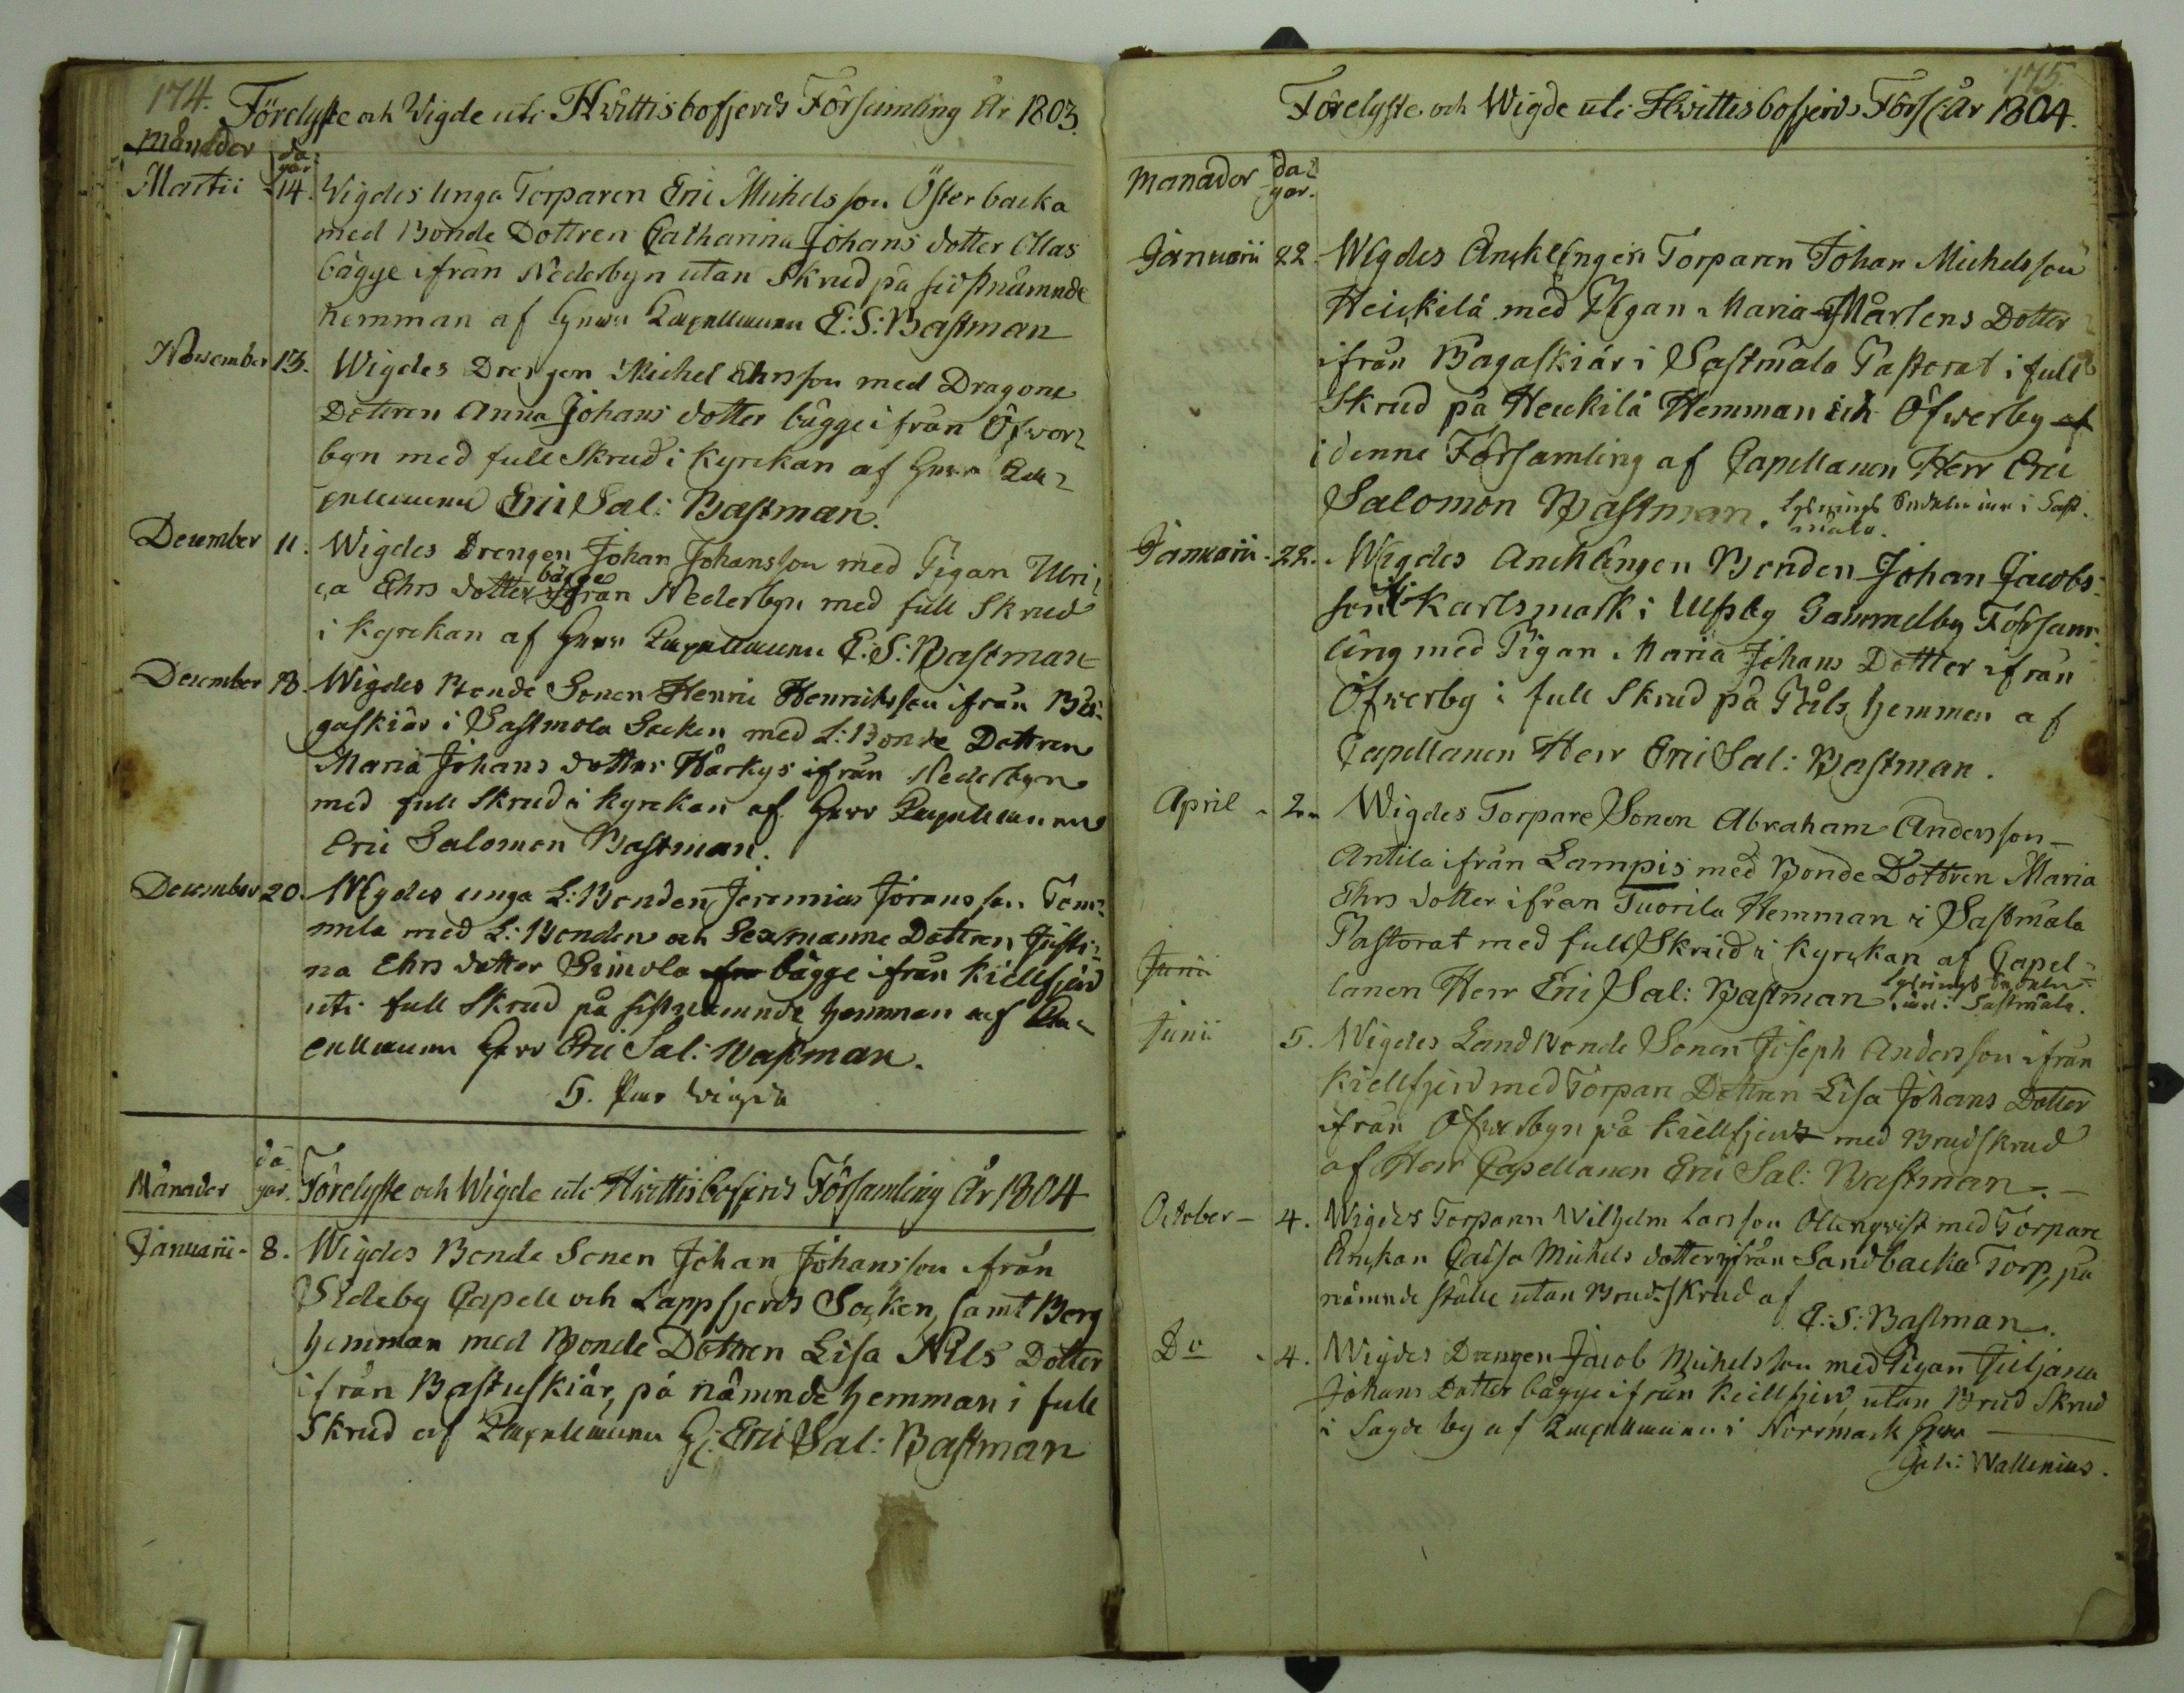 174.
Förelyste och Wigde uti Hwittisbofjerds Församling År 1803.
Månader
da
gar
Martii 14. Wigdes Unga Torparen Eric Michelsson Österbacka
med Bonde Dottren Catharina Johans dotter Ollas
bägge ifrån Nederbyn utan Skrud på sidstnämnde
hemman af Herr Capellanen E: S: Bastman
November 13. Wigdes Drengen Michel Ehrsson med Dragone
Dottren Anna Johans dotter bägge ifrån Öfwer
byn med full Skrud i Kyrckan af Herr Ca
pellanen Eric Sal: Bastman.
December 11. Wigdes Drengen Johan Johansson med Pigan Ulri
ca Ehrs dotter bägge ifrån Nederbyn med full Skrud
i Kyrckan af Herr Capellanen E: S: Bastman
December 18. Wigdes Bonde Sonen Henric Henricksson ifrån Ba
gaskiär i Sastmola Socken med L: Bonde Dottren
Maria Johans dotter Härkys ifrån Nederbyn
med full Skrud i Kyrckan af Herr Capellanen
Eric Salomon Bastman.
December 20. Wigdes unga L: Bonden Jeremias Joransson Tom
mila med L: Bonden och Sexmanne Dottren Justi
na Ehrs dotter Simola bägge ifrån Kiellfjerd
uti full Skrud på sistnämnde hemman af Ca
pellanen Herr Eric Sal: Bastman.
5. Par wigda
Månader
da
gar.
Förelyste och Wigde uti Hwittisbofjerds Församling År 1804
Januarii - 8. Wigdes Bonde Sonen Johan Johansson ifrån
Sideby Capell och Lappfjerds Socken, samt Berg
hemman med Bonde Dottren Lisa Nils Dotter
ifrån Bastuskiär, på nämnde hemman i full
Skrud af Capellanen H: Eric Sal: Bastman
175.
Förelyste och Wigde uti Hwittisbofjerds Förs: År 1804.
Månader
da
gar.
Januarii 22. Wigdes Ancklingen Torparen Johan Michelsson
Heickilä med Pigan Maria Mårtens Dotter
ifrån Bagaskiär i Sastmåla Pastorat i full
Skrud på Heickilä Hemman och Öfwerby af
i denne Församling af Capellanen Herr Eric
Salomon Bastman. Lysnings i Sast
måla.
Januarii - 22. Wigdes Ancklingen Bonden Johan Jacobs
son Karlsmark i Ulfsby Gammelby Försam
ling med Pigan Maria Johans Dotter ifrån
Öfwerby i full Skrud på Påls hemman af
Capellanen Herr Eric Sal: Bastman.
April - 2. Wigdes Torpare Sonen Abraham Andersson
Antila ifrån Lampis med Bonde Dottren Maria
Ehrs dotter ifrån Tuorila Hemman i Sastmåla
Pastorat med full Skrud i Kyrckan af Capel
Junii
lanen Herr Eric Sal: Bastman Lysnings
Sastmåla.
Junii 5. Wigdes Land Bonde Sonen Joseph Andersson ifrån
Kiellfjerd med Torpare Dottren Lisa Johans Dotter
ifrån Öfwerbyn på Kiellfjerd med Brudskrud
af Herr Capellanen Eric Sal: Bastman. -
October - 4. Wigdes Torparen Wilhelm Larsson Ollenqwist med Torpare
Änckan Caisa Michels dotter ifrån Sandbacka Torp, på
nämnde ställe utan Brud-skrud af
E: S: Bastman.
Do - 4. Wigdes Drengen Jacob Michelsson med Pigan Juljana
Johans Dotter bägge ifrån Kiellfjerd, utan Brud Skrud
i Sagde by af Capellanen i Norrmark Herr
Joh: Wallenius.